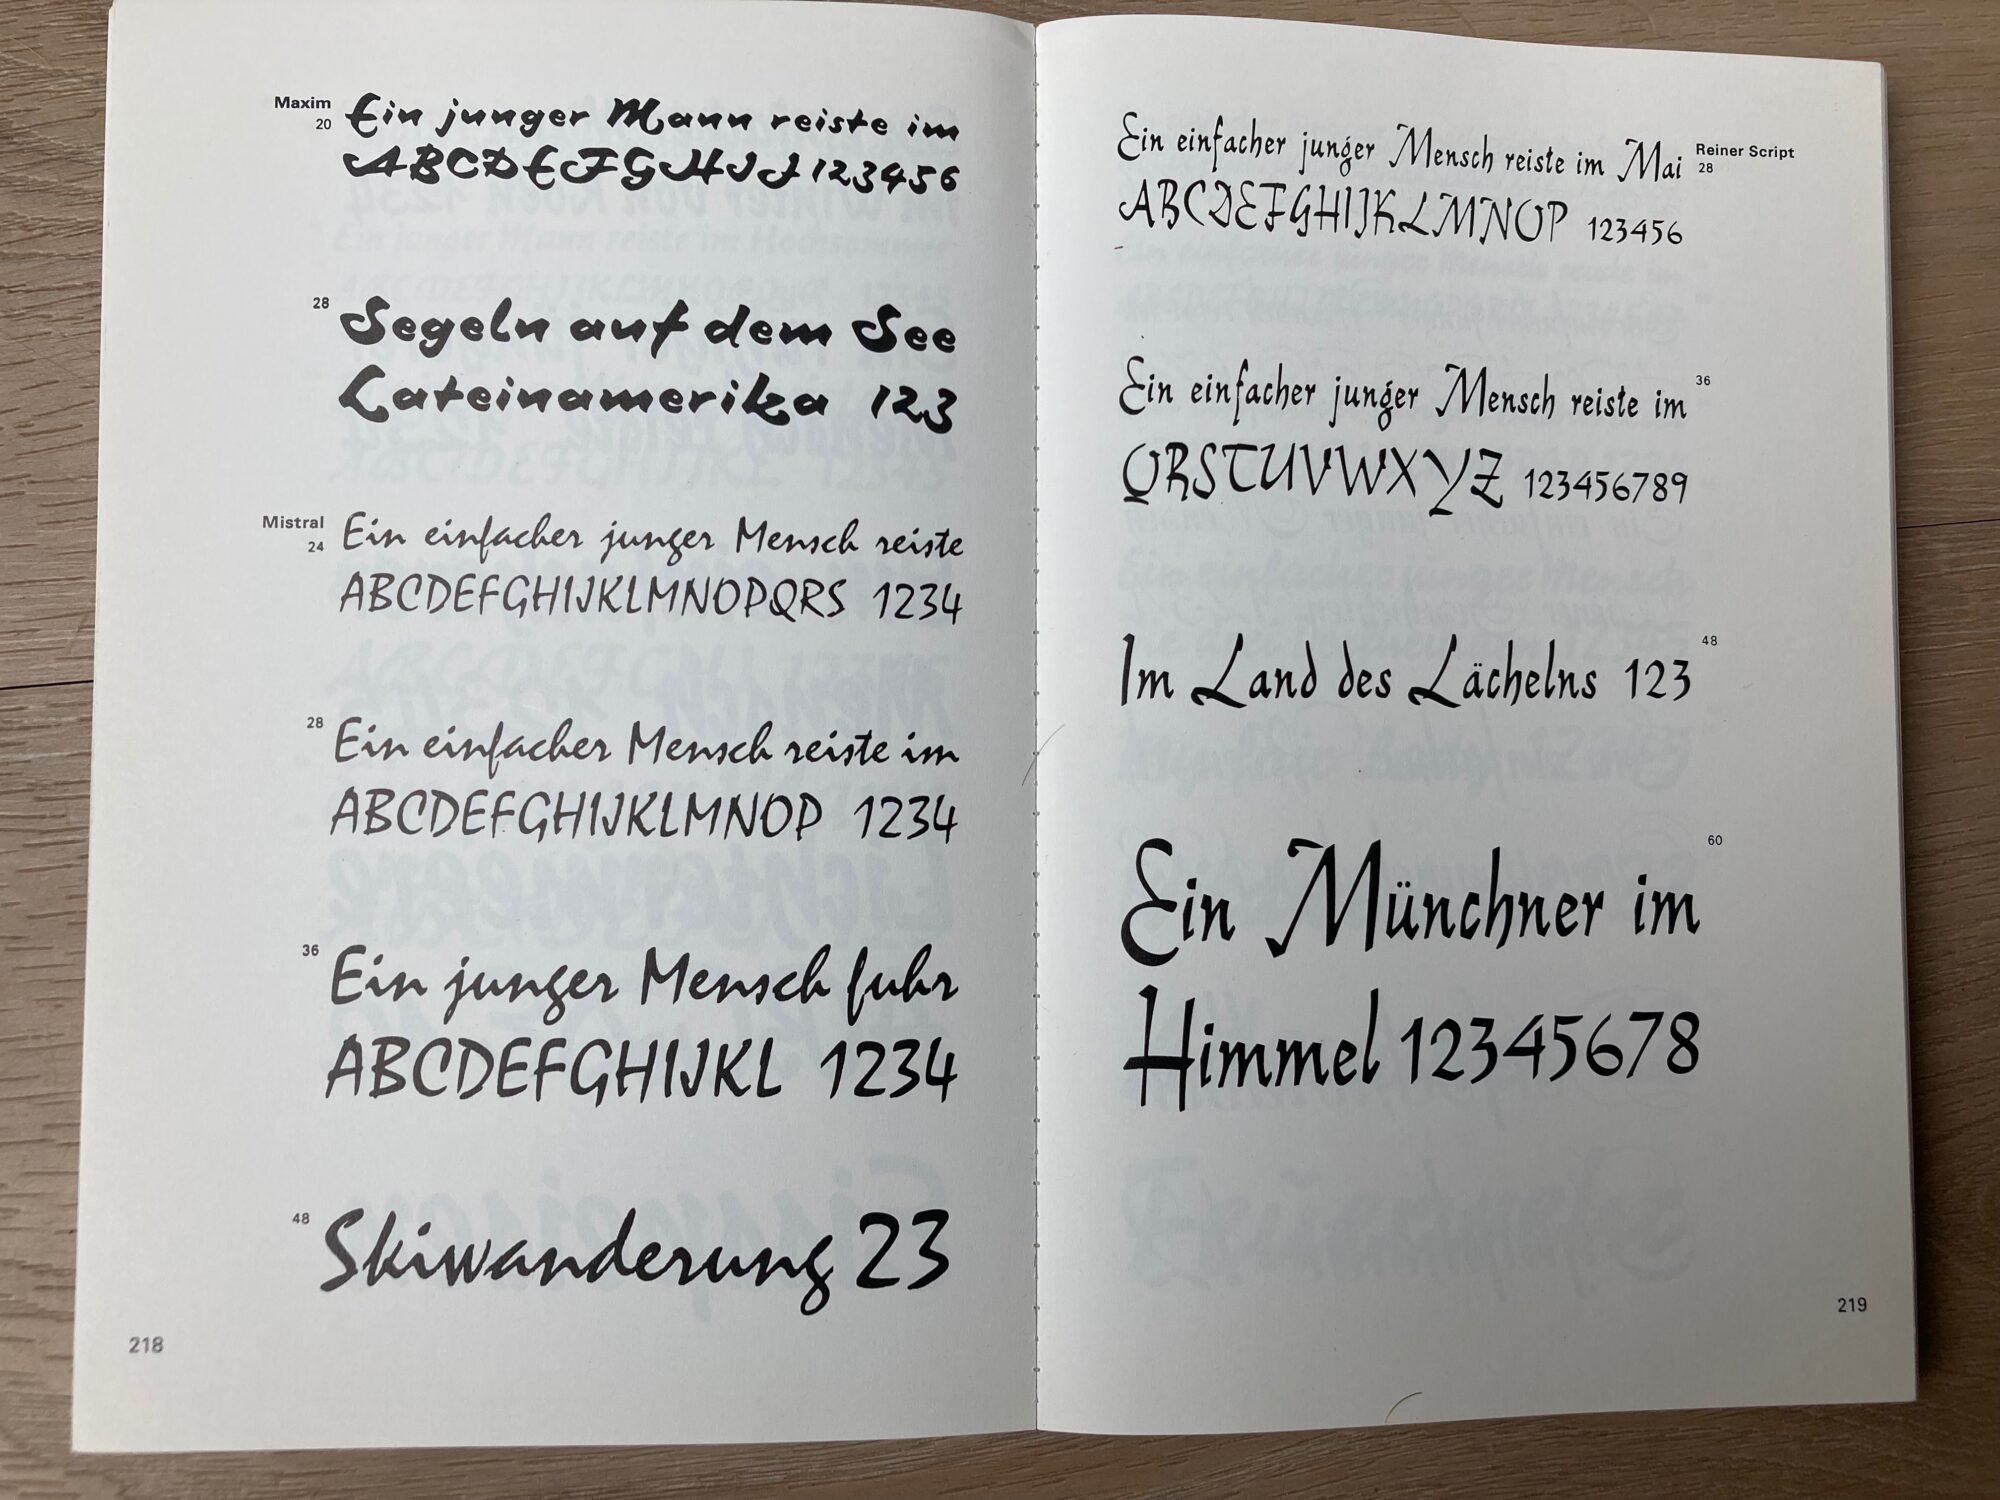 Maxim
20
Ein junger Mann reiste im
ABCDEFGHIJ 123456
28
Segeln auf dem See
Lateinamerika 123
Mistral
24
Ein einfacher junger Mensch reiste
ABCDEFGHIJKLMNOPQRS 1234
28
Ein einfacher Mensch reiste im
ABCDEFGHIJKLMNOP 1234
36
Ein junger Mensch fuhr
ABCDEFGHIJKL 1234
48
Skiwanderung 23
218
Ein einfacher junger Mensch reiste im Mai
Reiner Script
28
ABCDEFGHIJKLMNOP 123456
Ein einfacher junger Mensch reiste im
36
QRSTUVWXYZ 123456789
48
Im Land des Lächelns 123
60
Ein Münchner im
Himmel 12345678
219